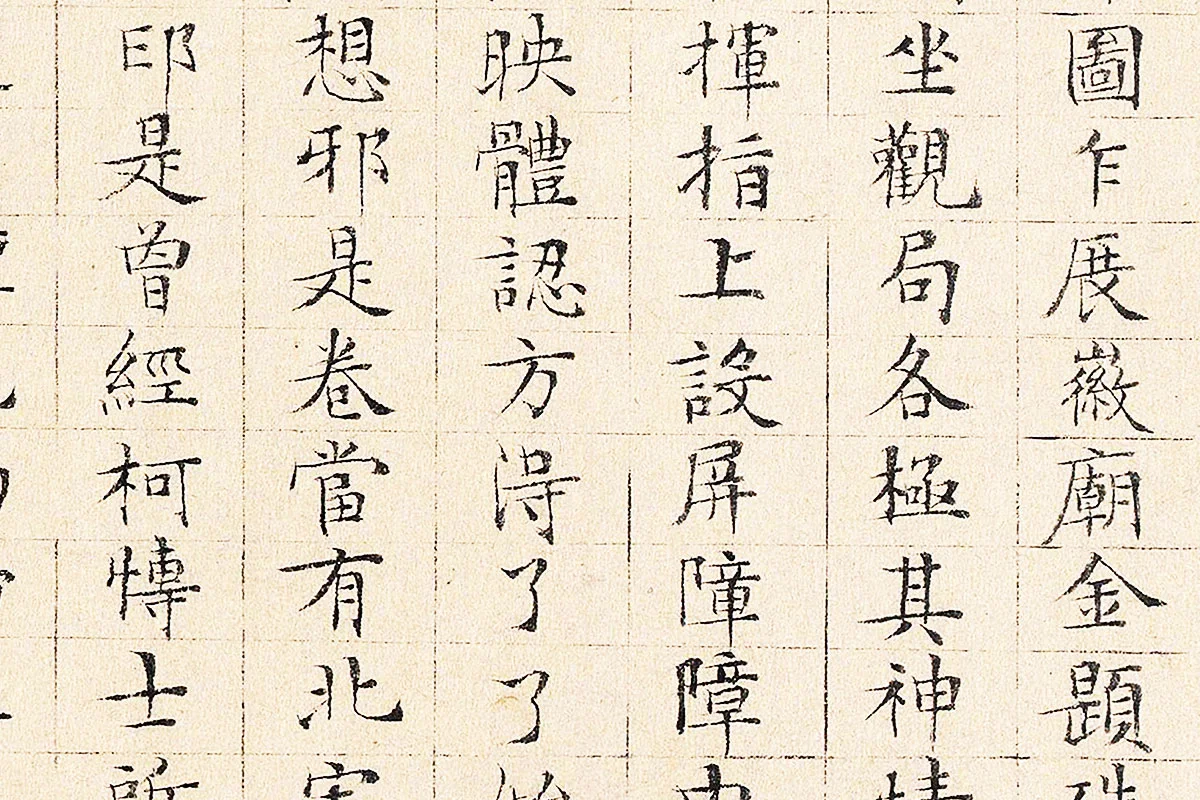 圖乍展徽廟金題
坐觀局各極其神
揮指上設屏障障
映體認方得了了
想邪是卷當有北宋
印是曾經柯博士所